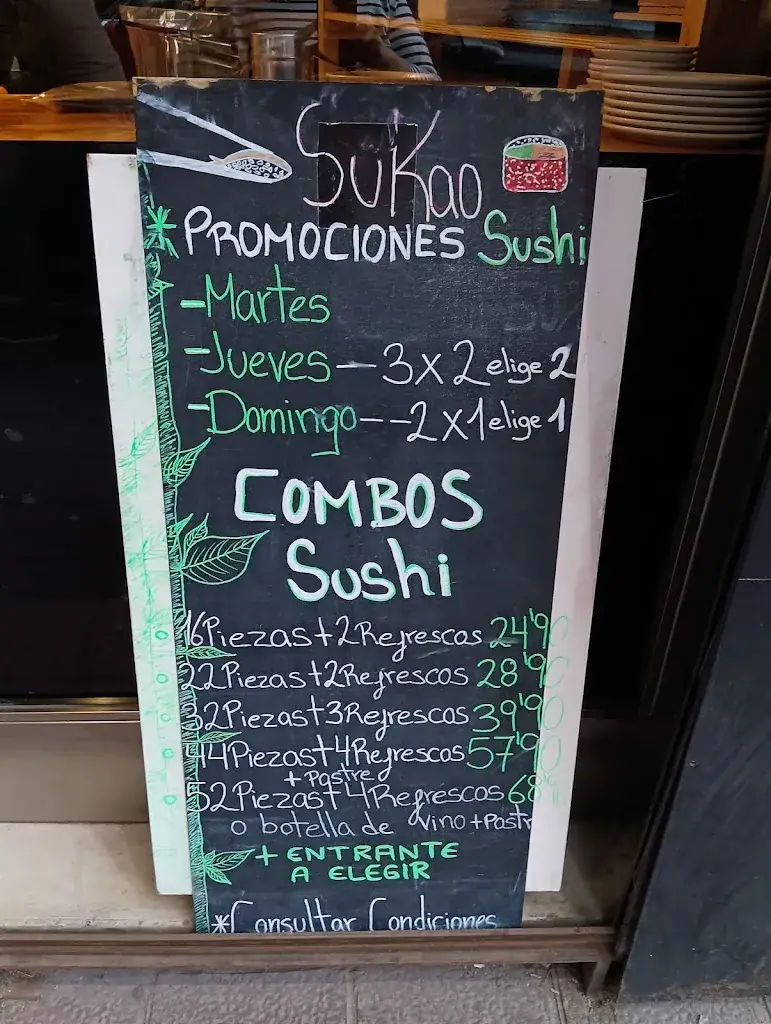 SuKao
* PROMOCIONES Sushi
-Martes
-Jueves — 3x2 elige 2
-Domingo -- 2x1 elige 1
COMBOS
Sushi
16 Piezas + 2 Refrescos 24'90
22 Piezas + 2 Refrescos 28'90
32 Piezas + 3 Refrescos 39'90
44 Piezas + 4 Refrescos 57'90
+ Postre
52 Piezas + 4 Refrescos
o botella de vino + Postre
+ ENTRANTE
A ELEGIR
*Consultar Condiciones